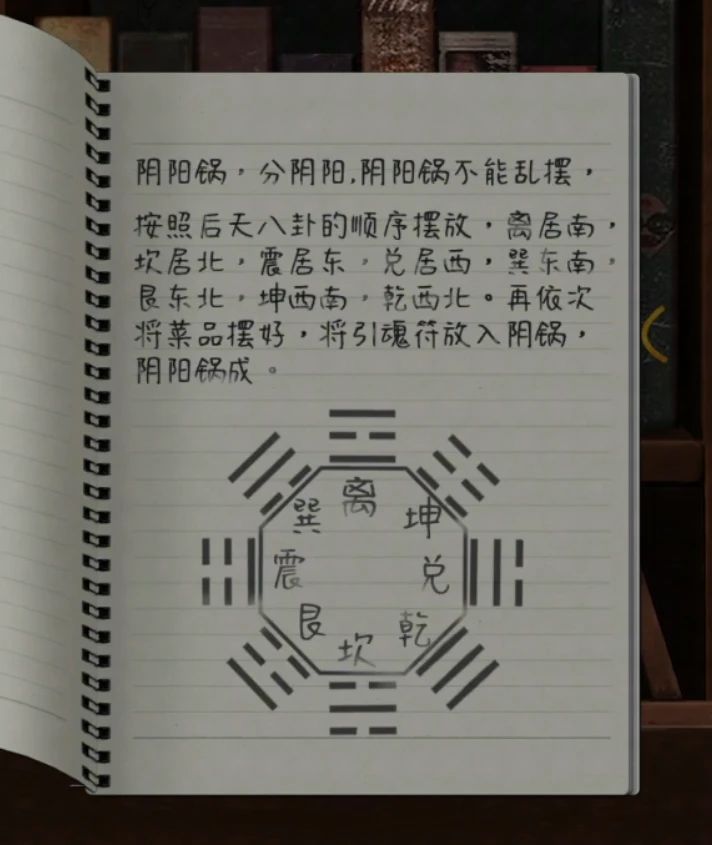 阴阳锅，分阴阳，阴阳锅不能乱摆，
按照后天八卦的顺序摆放，离居南，
坎居北，震居东，兑居西，巽东南，
艮东北，坤西南，乾西北。再依次
将菜品摆好，将引魂符放入阴锅，
阴阳锅成。
离
巽
坤
震
兑
艮
乾
坎